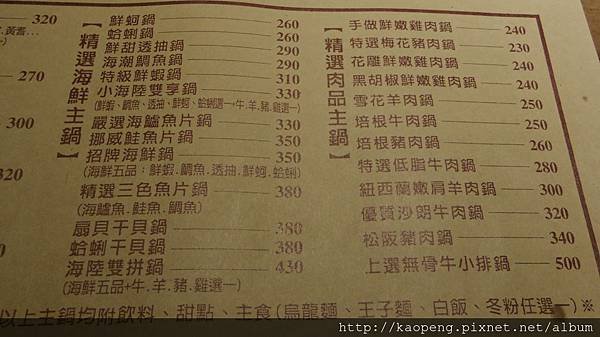 320
.黃耆...
270
300
320
350
【精選海鮮主鍋】
鮮蚵鍋 260
蛤蜊鍋 260
鮮甜透抽鍋 290
海潮鯛魚鍋 290
特級鮮蝦鍋 310
小海陸雙享鍋 330
(鮮蝦、鯛魚、透抽、鮮蚵、蛤蜊選一+牛.羊.豬.雞選一)
嚴選海鱸魚片鍋 330
挪威鮭魚片鍋 350
招牌海鮮鍋 350
(海鮮五品：鮮蝦.鯛魚.透抽.鮮蚵.蛤蜊)
精選三色魚片鍋 380
(海鱸魚.鮭魚.鯛魚)
扇貝干貝鍋 380
蛤蜊干貝鍋 380
海陸雙拼鍋 430
(海鮮五品+牛.羊.豬.雞選一)
【精選肉品主鍋】
手做鮮嫩雞肉鍋 240
特選梅花豬肉鍋 230
花雕鮮嫩雞肉鍋 240
黑胡椒鮮嫩雞肉鍋 240
雪花羊肉鍋 250
培根牛肉鍋 250
培根豬肉鍋 260
特選低脂牛肉鍋 280
紐西蘭嫩肩羊肉鍋 300
優質沙朗牛肉鍋 320
松阪豬肉鍋 340
上選無骨牛小排鍋 500
以上主鍋均附飲料、甜點、主食(烏龍麵、王子麵、白飯、冬粉任選一)※
http://kaopeng.pixnet.net/album